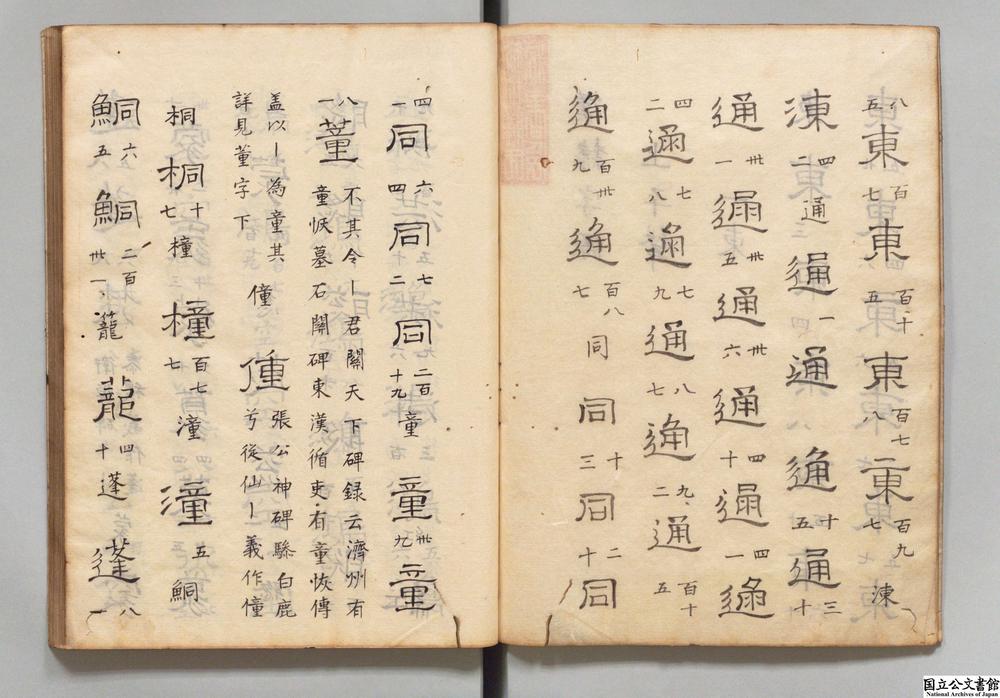 八五東百七東百十五東百七八東百九七涷
涷四通通一通通十五通三十
通卅一通卅五通卅六通四十通四一通
四二通七八通七九通八七通九二通百十五
通百卅九通百八七同同十三同二十同
四一同六四同五七二同二百十九童童卅九童
八一董不其令｜君闕天下碑録云濟州有
童恢墓石闕碑東漢循吏有童恢傳
盖以｜為童其
詳見董字下
僮僮張公神碑驂白鹿
兮從仙｜義作僮
桐桐十七橦橦百七七潼潼五鮦
鮦六五鮦二百卅一蘢四十蓬蓬八一
国立公文書館
National Archives of Japan